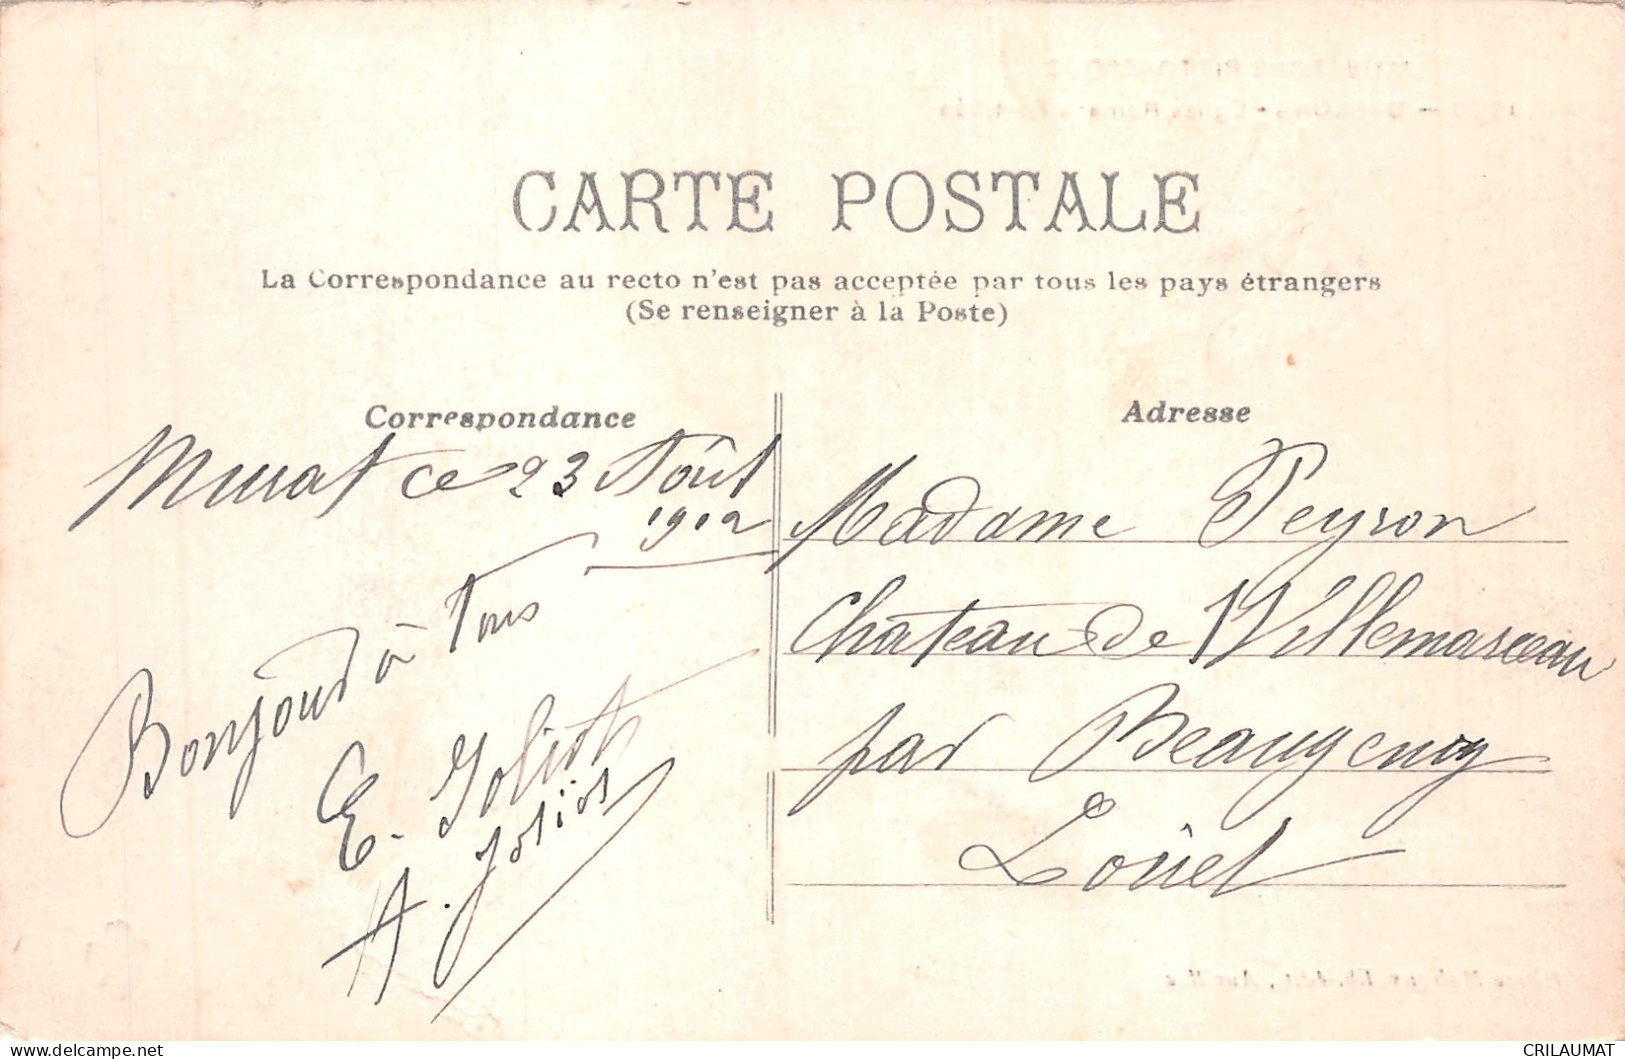 CARTE POSTALE
La Correspondance au recto n'est pas acceptée par tous les pays étrangers
(Se renseigner à la Poste)
Correspondance
Murat ce 23 Août
1912
Bonjour à Tous
E. Joliot
A. Joliot
Adresse
Madame Peyron
Château de Villemarceau
par Beaugency
Loiret
CRILAUMAT